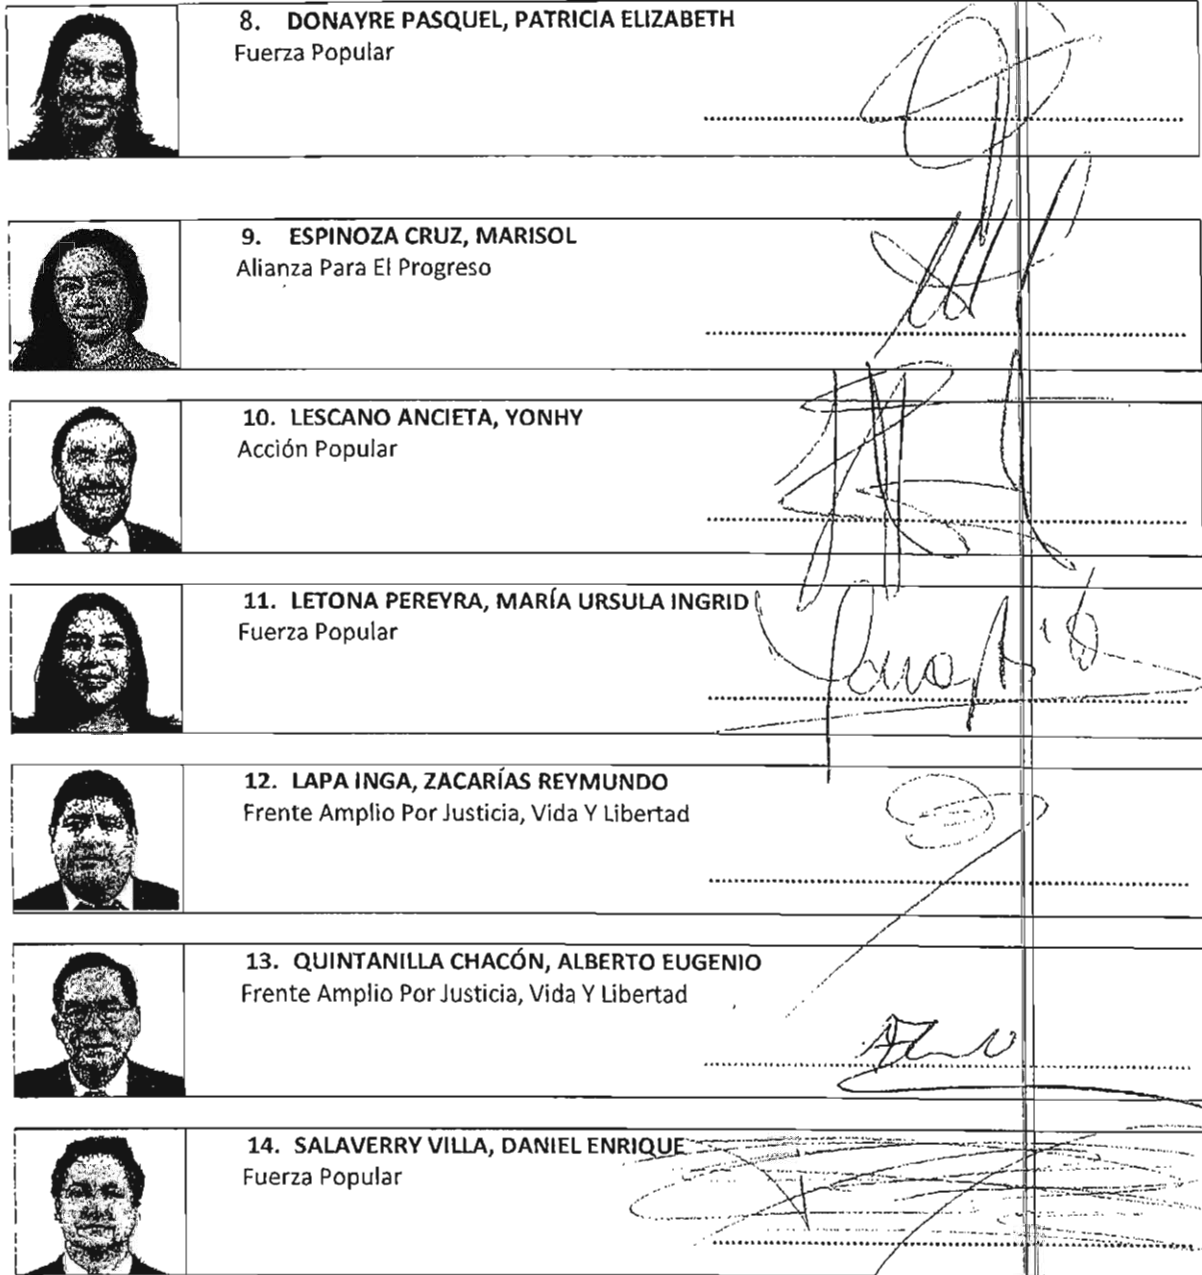 8. DONAYRE PASQUEL, PATRICIA ELIZABETH
Fuerza Popular
9. ESPINOZA CRUZ, MARISOL
Alianza Para El Progreso
10. LESCANO ANCIETA, YONHY
Acción Popular
11. LETONA PEREYRA, MARÍA URSULA INGRID
Fuerza Popular
12. LAPA INGA, ZACARÍAS REYMUNDO
Frente Amplio Por Justicia, Vida Y Libertad
13. QUINTANILLA CHACÓN, ALBERTO EUGENIO
Frente Amplio Por Justicia, Vida Y Libertad
14. SALAVERRY VILLA, DANIEL ENRIQUE
Fuerza Popular